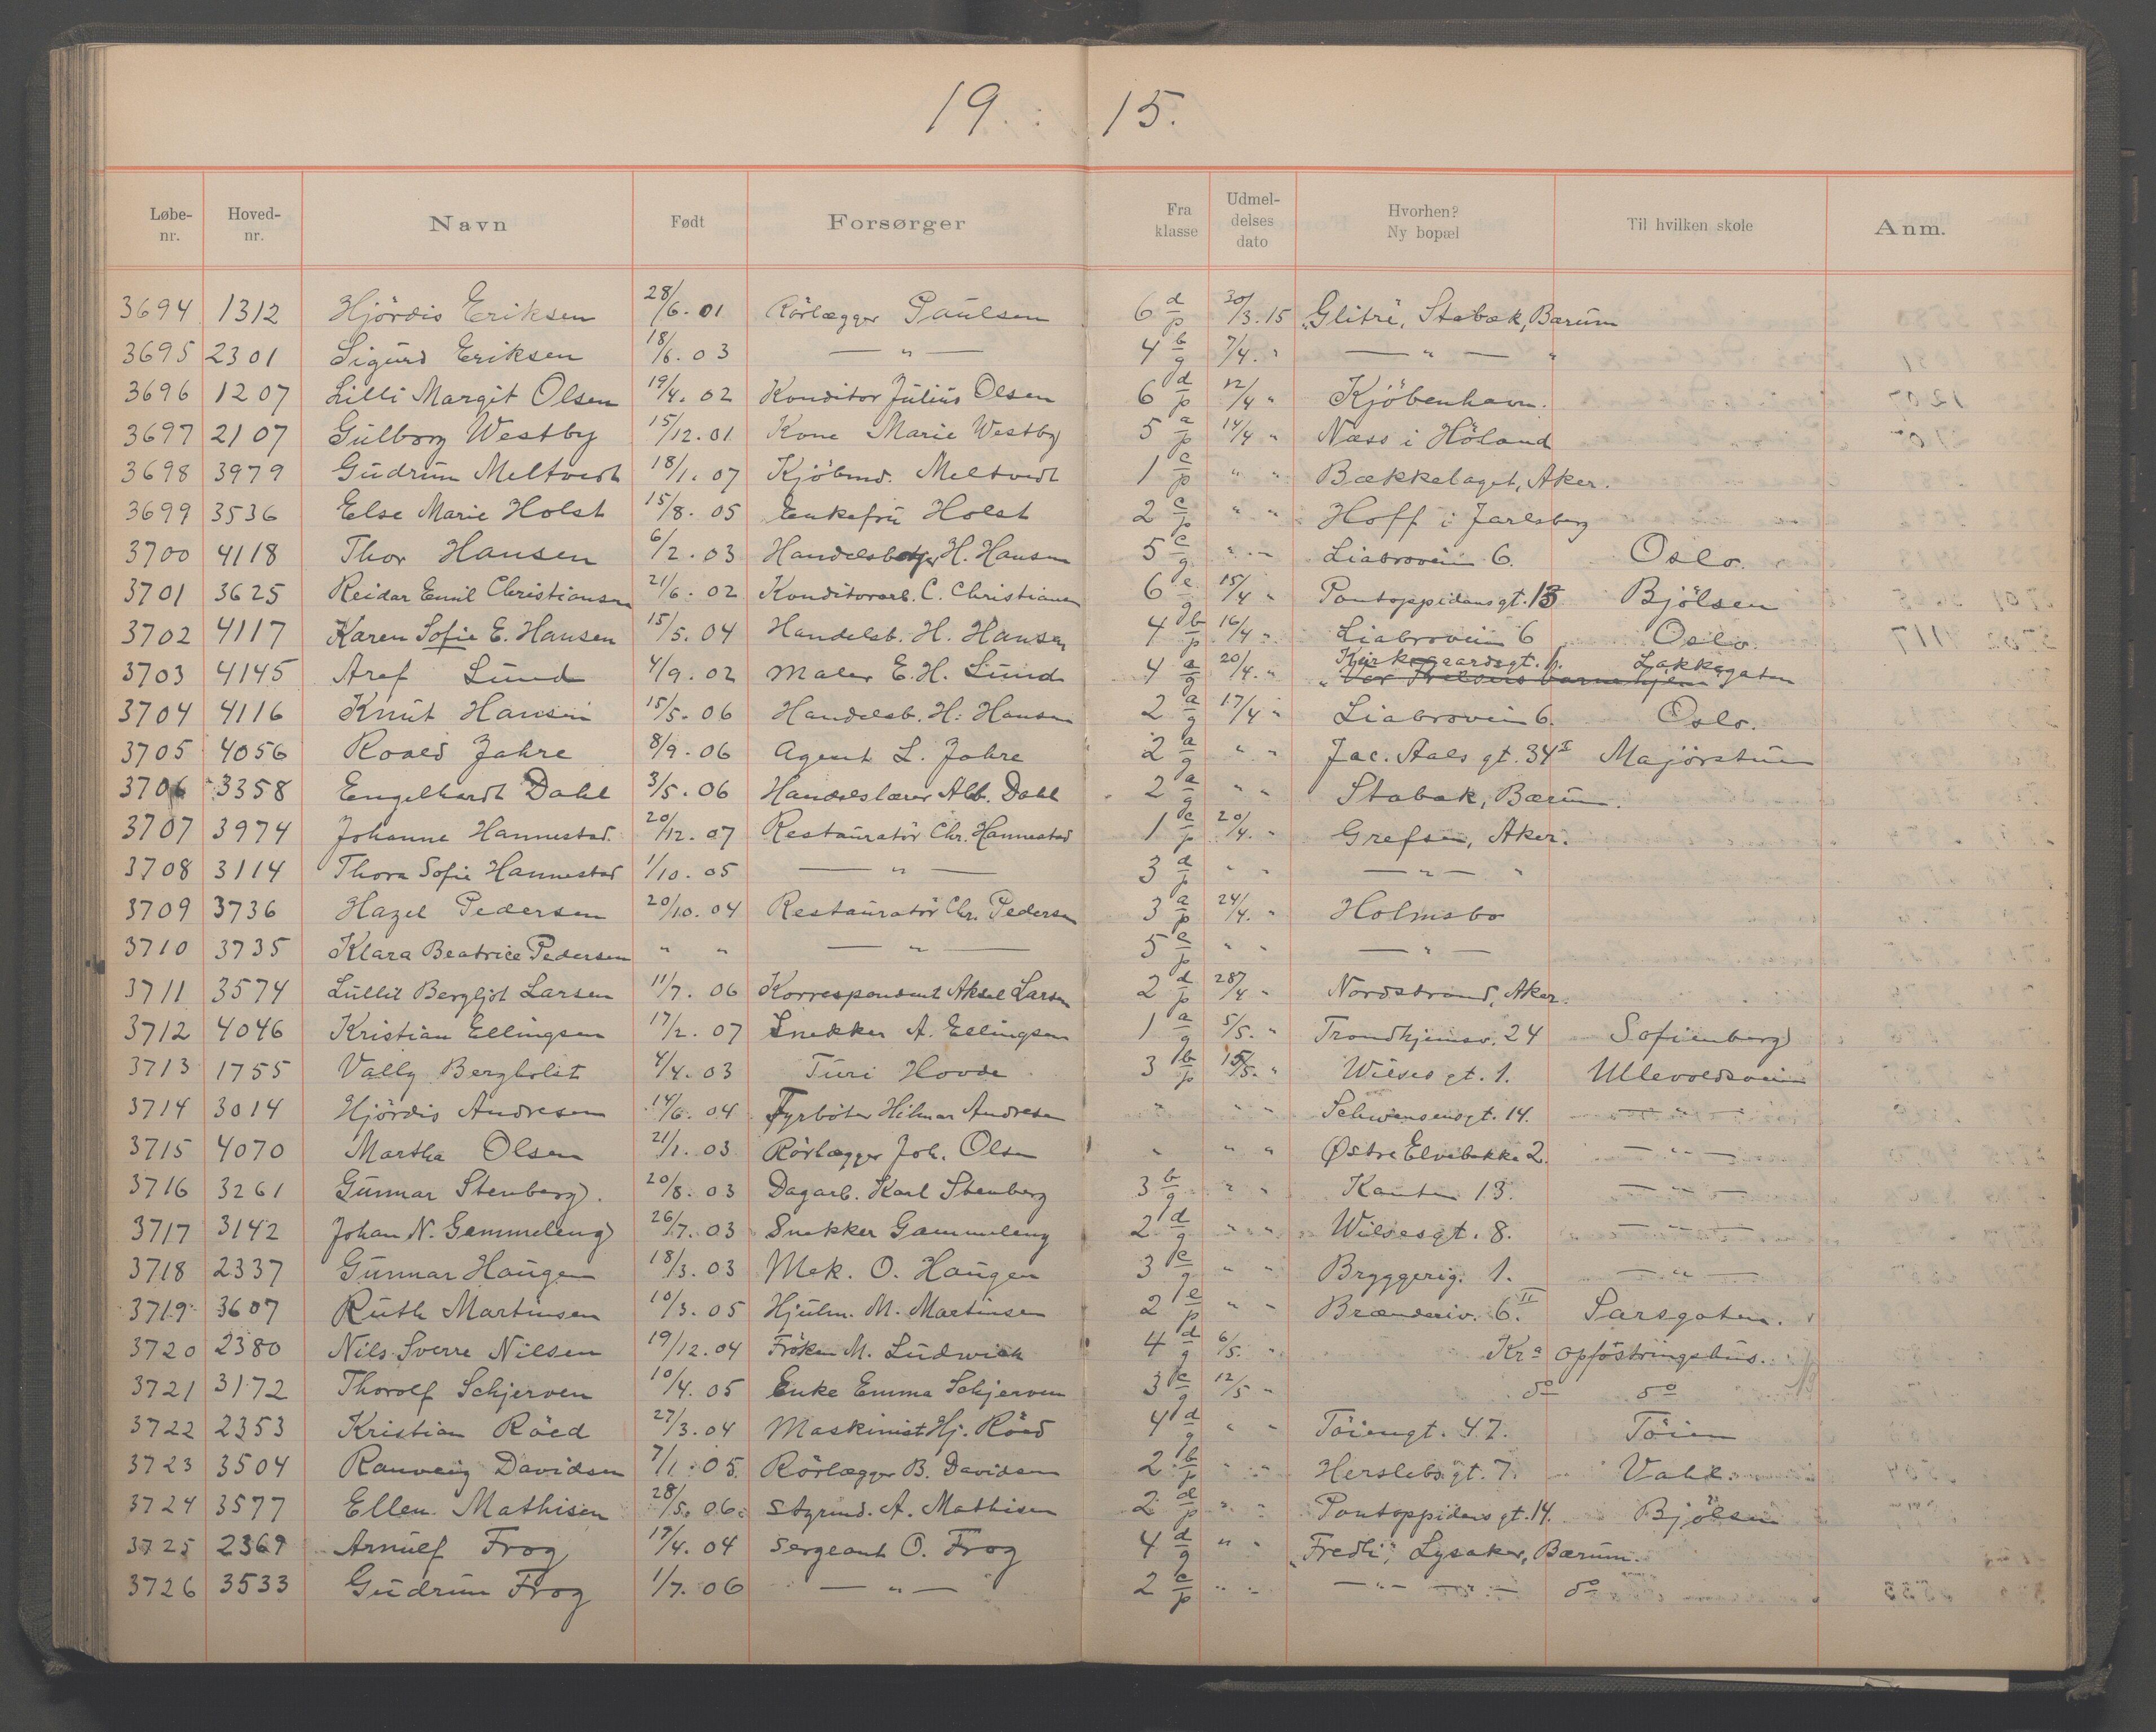 19 : 15.
Løbe-nr. Hoved-nr. Navn Født Forsørger Fra klasse Udmel-delses dato Hvorhen? Ny bopæl Til hvilken skole Anm.
3694 1312 Hjördis Eriksen 28/6. 01 Rörlægger Paulsen 6 d/p 30/3. 15 "Glitre", Stabæk, Bærum
3695 2301 Sigurd Eriksen 18/6. 03 — " — 4 b/g 7/4. " — " — "
3696 1207 Lilli Margit Olsen 19/4. 02 Konditor Julius Olsen 6 d/p 12/4 " Kjöbenhavn.
3697 2107 Gulborg Westby 15/12. 01 Kone Marie Westby 5 a/p 14/4 " Næss i Höland
3698 3979 Gudrun Meltvedt 18/1. 07 Kjöbmd. Meltvedt 1 e/p " " Bækkelaget, Aker.
3699 3536 Else Marie Holst 15/8. 05 Enkefru Holst 2 c/p " " Hoff i Jarlsberg
3700 4118 Thor Hansen 6/2. 03 Handelsb H. Hansen 5 c/g " " Liabroveien 6. Oslo.
3701 3625 Reidar Emil Christiansen 21/6. 02 Konditorarb. C. Christiansen 6 e/g 15/4 " Pontoppidansgt. 13 Bjölsen
3702 4117 Karen Sofie E. Hansen 15/5. 04 Handelsb. H. Hansen 4 b/p 16/4 " Liabroveien 6 Oslo.
3703 4145 Aref Lund 4/9. 02 Maler E. H. Lund 4 a/g 20/4. " Kirkegaardsgt. 1. Lakkegaten
3704 4116 Knut Hansen 15/5. 06 Handelsb. H. Hansen 2 a/g 17/4 " Liabroveien 6. Oslo.
3705 4056 Roald Jahre 8/9. 06 Agent L. Jahre 2 a/g " " Jac. Aals gt. 34 I Majorstuen
3706 3358 Engelhardt Dahl 3/5. 06 Handelslærer Alb. Dahl 2 a/g " " Stabæk, Bærum.
3707 3974 Johanne Hannestad. 20/12. 07 Restauratör Chr. Hannestad 1 c/p 20/4. " Grefsen, Aker.
3708 3114 Thora Sofie Hannestad 1/10. 05 — " — 3 d/p " " — " — "
3709 3736 Hazel Pedersen 20/10. 04 Restauratör Chr. Pedersen 3 a/p 24/4. " Holmsbo
3710 3735 Klara Beatrice Pedersen " " — " — 5 e/p " " — " —
3711 3574 Lullit Bergljot Larsen 11/7. 06 Korrespondent Aksel Larsen 2 d/p 28/4 " Nordstrand, Aker.
3712 4046 Kristian Ellingsen 17/2. 07 Snekker A. Ellingsen 1 a/g 5/5. " Trondhjemsv. 24 Sofienberg
3713 1755 Vally Bergholit 4/4. 03 Turi Hovde 3 b/p 15/5. " Wilses gt. 1. Ullevoldsveien
3714 3014 Hjördis Andresen 14/6. 04 Fyrböter Hilmar Andresen " " " Schwensensgt. 14. — " —
3715 4070 Martha Olsen 21/1. 03 Rörlægger Joh. Olsen " " " Østre Elvebakke 2. — " —
3716 3261 Gunnar Stenberg. 20/8. 03 Dagarb. Karl Stenberg 3 b/g " " Kanten 13. — " —
3717 3142 Johan N. Gammeleng 26/7. 03 Snekker Gammeleng 2 d/g " " Wilsesgt. 8. — " —
3718 2337 Gunnar Haugen 18/3. 03 Mek. O. Haugen 3 e/g " " Bryggerig. 1. — " —
3719 3607 Ruth Martinsen 10/3. 05 Hjulm. M. Martinsen 2 e/p " " Brænderiv. 6. II Sarsgaten.
3720 2380 Nils Sverre Nilsen 19/12. 04 Fröken M. Ludwich 4 d/g 6/5. " Kra opföstringshus.
3721 3172 Thorolf Schjerven 10/4. 05 Enke Emma Schjerven 3 c/g 12/5 " do do
3722 2353 Kristian Röed 27/3. 04 Maskinist Hj. Röed 4 d/g " " Töiengt. 47. Töien
3723 3504 Ranveig Davidsen 7/1. 05. Rörlægger B. Davidsen 2 b/p " " Herslebs gt. 7. Vahl.
3724 3577 Ellen Mathisen 28/5. 06. Styrmd. A. Mathisen 2 d/p " " Pontoppidans gt. 14. Bjölsen
3725 2369 Arnulf Frog 17/4. 04 Sergeant O. Frog 4 d/g " " "Fredli", Lysaker, Bærum.
3726 3533 Gudrun Frog 1/7. 06 — " — 2 c/p " " — " — — " — do